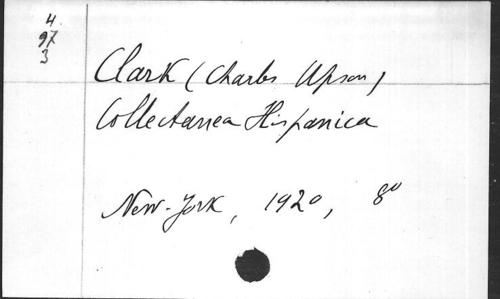 4
97
3
Clark (Charles Upson)
Collectanea Hispanica
New-York, 1920, 8º